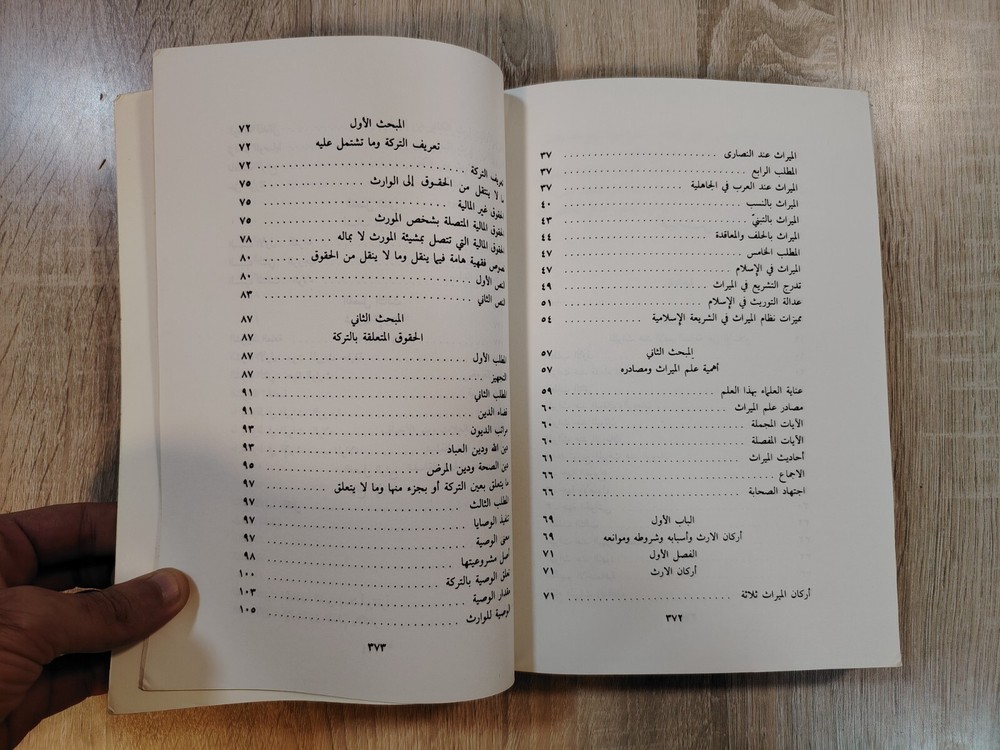 الميراث عند النصارى ........................ ٣٧
المطلب الرابع ........................ ٣٧
الميراث عند العرب في الجاهلية ........................ ٣٧
الميراث بالنسب ........................ ٤٠
الميراث بالتبنيّ ........................ ٤٣
الميراث بالحلف والمعاقدة ........................ ٤٤
المطلب الخامس ........................ ٤٧
الميراث في الإسلام ........................ ٤٧
تدرج التشريع في الميراث ........................ ٤٩
عدالة التوريث في الإسلام ........................ ٥١
مميزات نظام الميراث في الشريعة الإسلامية ............ ٥٤
المبحث الثاني ٥٧
أهمية علم الميراث ومصادره ٥٧
عناية العلماء بهذا العلم ........................ ٥٩
مصادر علم الميراث ........................ ٦٠
الآيات المجملة ........................ ٦٠
الآيات المفصلة ........................ ٦٠
أحاديث الميراث ........................ ٦١
الاجماع ........................ ٦٦
اجتهاد الصحابة ........................ ٦٦
الباب الأول ٦٩
أركان الارث وأسبابه وشروطه وموانعه ٦٩
الفصل الأول ٧١
أركان الارث ٧١
أركان الميراث ثلاثة ........................ ٧١
٣٧٢
المبحث الأول ٧٢
تعريف التركة وما تشتمل عليه ٧٢
تعريف التركة ........................ ٧٢
لا ينتقل من الحقوق إلى الوارث ................ ٧٥
الحقوق غير المالية ........................ ٧٥
الحقوق المالية المتصلة بشخص المورث ................ ٧٥
الحقوق المالية التي تتصل بمشيئة المورث لا بماله .......... ٧٨
نصوص فقهية هامة فيما ينقل وما لا ينقل من الحقوق ....... ٨٠
النص الأول ........................ ٨٠
النص الثاني ........................ ٨٣
المبحث الثاني ٨٧
الحقوق المتعلقة بالتركة ٨٧
المطلب الأول ........................ ٨٧
التجهيز ........................ ٨٧
المطلب الثاني ........................ ٩١
قضاء الدين ........................ ٩١
مراتب الديون ........................ ٩٣
دين الله ودين العباد ........................ ٩٣
دين الصحة ودين المرض ........................ ٩٥
ما يتعلق بعين التركة أو بجزء منها وما لا يتعلق .......... ٩٧
المطلب الثالث ........................ ٩٧
تنفيذ الوصايا ........................ ٩٧
معنى الوصية ........................ ٩٧
أصل مشروعيتها ........................ ٩٨
تعلق الوصية بالتركة ........................ ١٠٠
مقدار الوصية ........................ ١٠٣
الوصية للوارث ........................ ١٠٥
٣٧٣